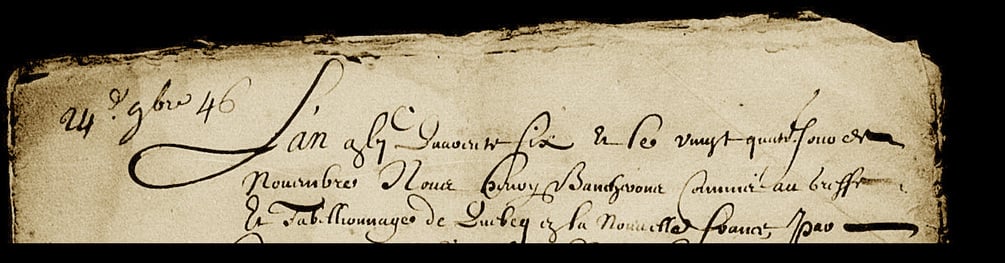 24.e 9bre 46
L'an xvjC Quarente six et le vingt quatre Jour de
Nouembre Nous Bancheron Commis au Greffe
Et Tabellionnage de Quebeq en la Nouuelle france par